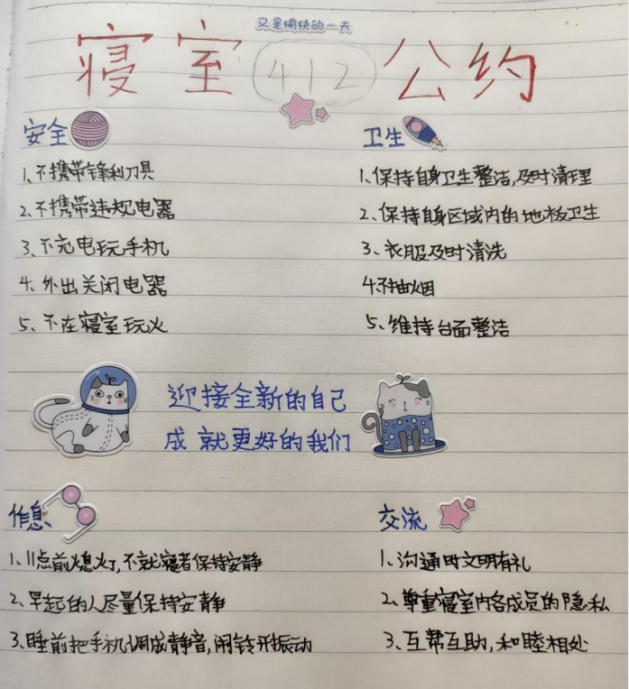 又是愉快的一天
寝室412公约
安全
1、不携带锋利刀具
2、不携带违规电器
3、不充电玩手机
4、外出关闭电器
5、不在寝室玩火
卫生
1、保持自身卫生整洁,及时清理
2、保持自身区域内的地板卫生
3、衣服及时清洗
4、不抽烟
5、维持台面整洁
迎接全新的自己
成就更好的我们
作息
1、11点前熄灯,不就寝者保持安静
2、早起的人尽量保持安静
3、睡前把手机调成静音,闹铃开振动
交流
1、沟通时文明有礼
2、尊重寝室内各成员的隐私
3、互帮互助,和睦相处